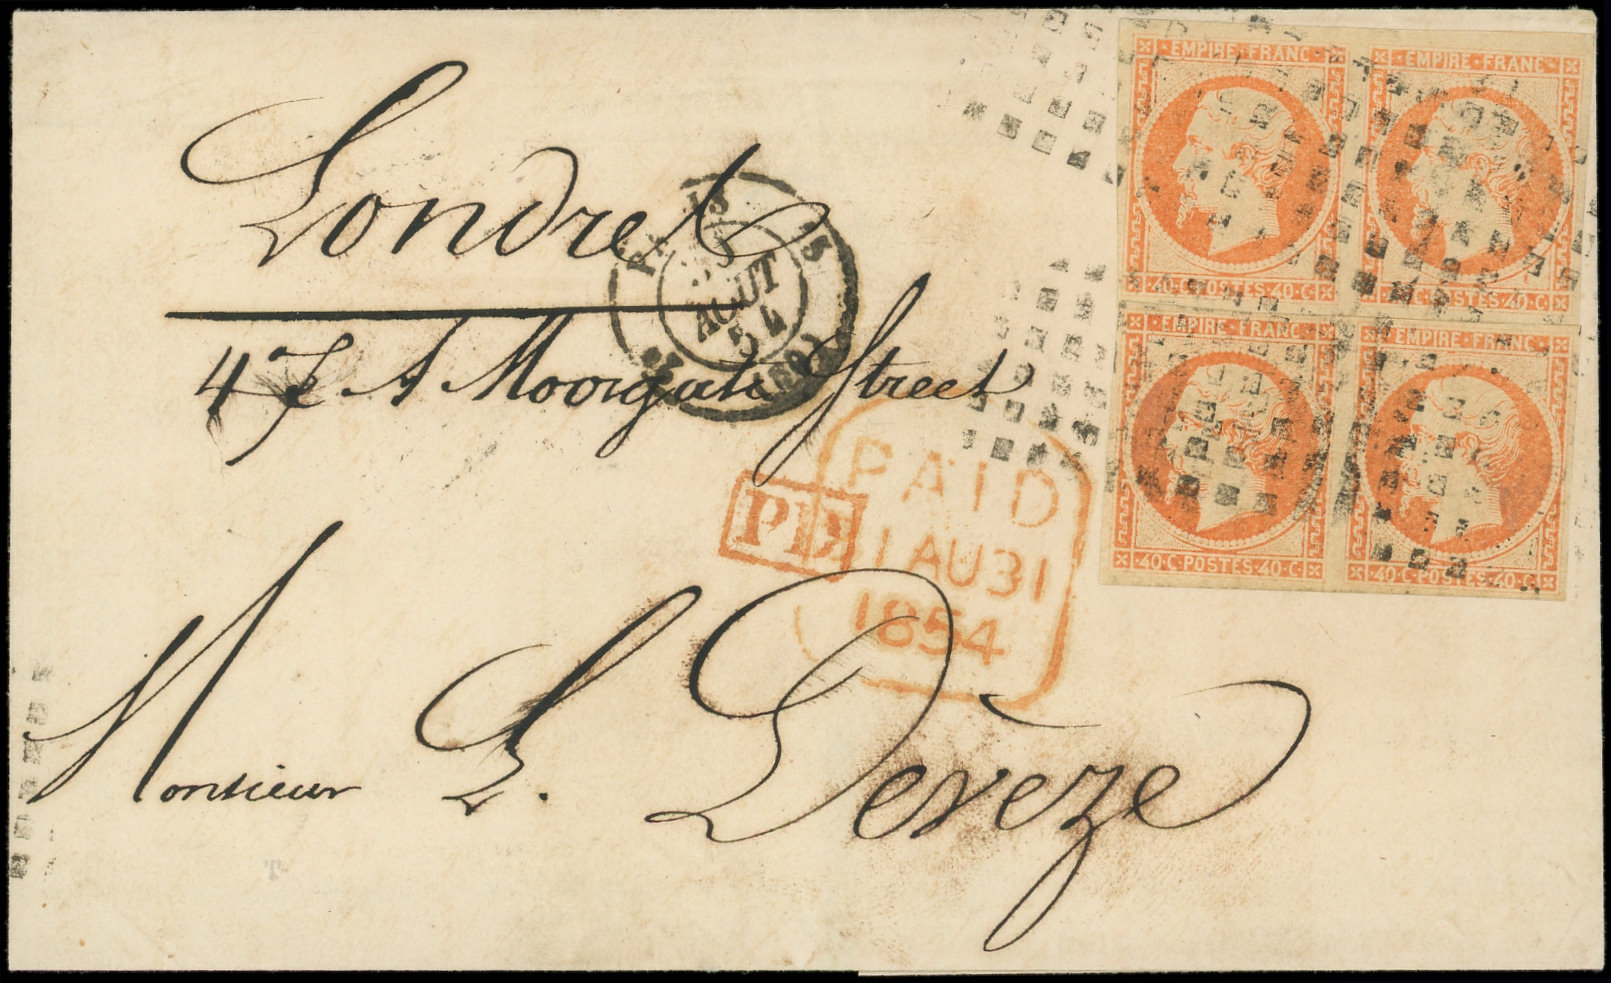 EMPIRE·FRANC·
40·C·POSTES·40·C
EMPIRE·FRANC·
40·C·POSTES·40·C
EMPIRE·FRANC·
40·C·POSTES·40·C
EMPIRE·FRANC·
40·C·POSTES·40·C
Londres
AOUT
54
(60)
47 A Moorgate Street
PD
PAID
1 AU 31
1854
Monsieur L. Devèze